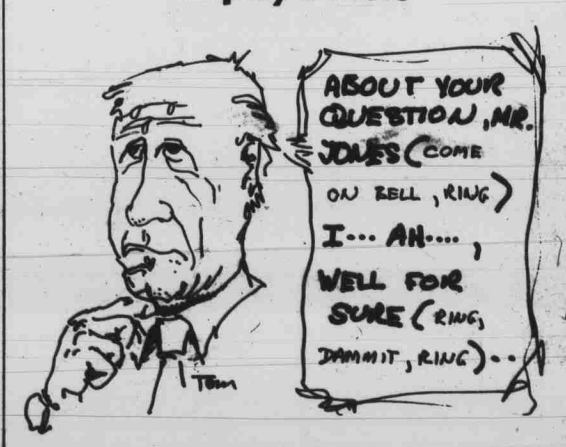 ABOUT YOUR
QUESTION, MR.
JONES (COME
ON BELL, RING)
I... AH....,
WELL FOR
SURE (RING,
DAMMIT, RING)..
Tom